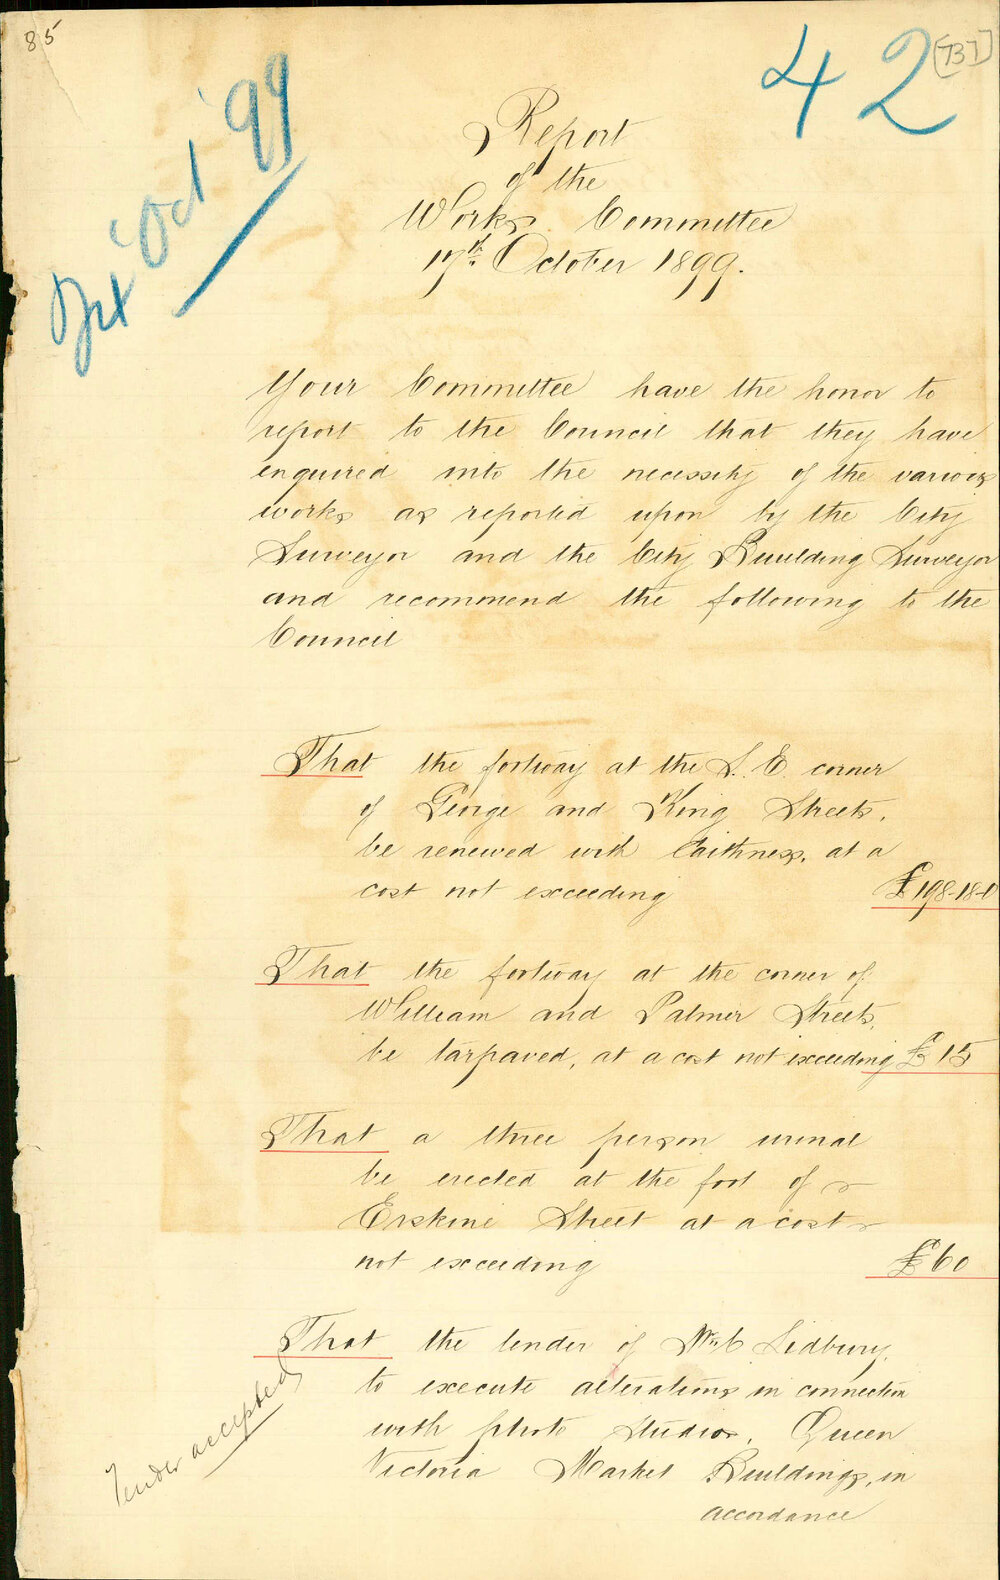 85
42
[737]
Oct '99
Report
of the
Works Committee
17th October 1899.
Your Committee have the honor to
report to the Council that they have
enquired into the necessity of the various
works as reported upon by the City
Surveyor and the City Building Surveyor
and recommend the following to the
Council
That the footway at the S. E. corner
of George and King Streets,
be renewed with Caithness, at a
cost not exceeding £198-18-0
That the footway at the corner of
William and Palmer Streets,
be tarpaved, at a cost not exceeding £15
That a three person urinal
be erected at the foot of
Erskine Street at a cost
not exceeding £60
That the tender of Sidbury,
to execute alterations in connection
with photo studios, Queen
Victoria Market Buildings, in
accordance
Tender accepted